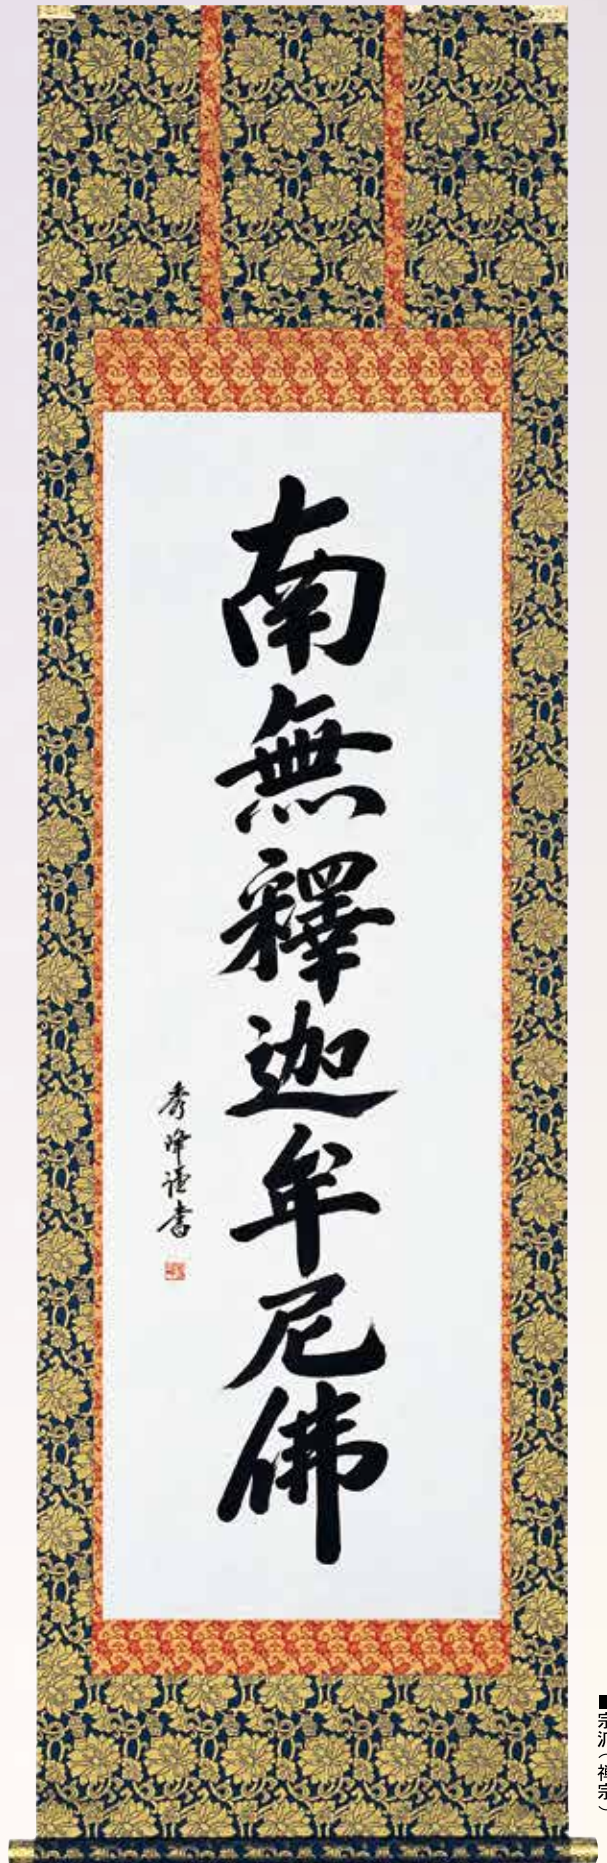 南無釋迦牟尼佛
秀峰謹書
■宗派（禅宗）